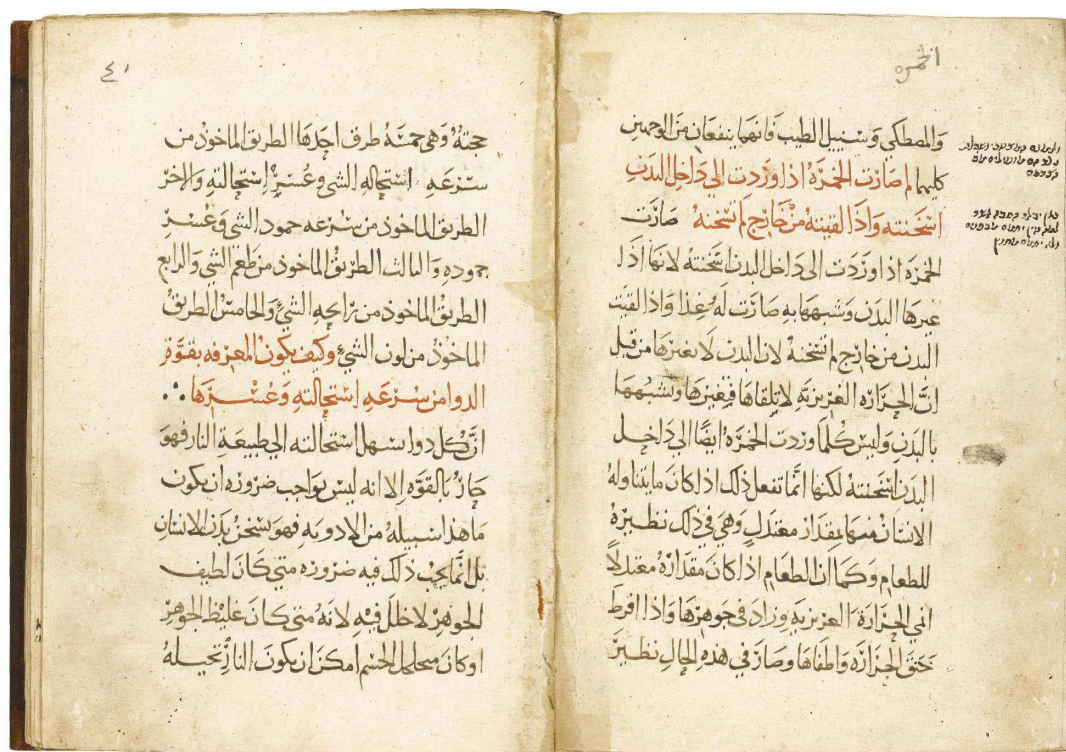 الخمره
والمصطكي وسنبل الطيب فانهما ينفعان من الوجهين
كليهما لم صارت الخمرة اذا وردت الي داخل البدن
اسخنته واذا القيته من خارج لم تسخنه صارت
الخمرة اذا وردت الي داخل البدن سخنته لانها اذا
غيرها البدن وشبهها به صارت له غذا واذا القيت
البدن من خارج لم تسخنه لان البدن لا يغيرها من قبل
ان الحرارة الغريزيه لا تلقاها فتغيرها وتشبهها
بالبدن وليس كلما وردت الخمرة ايضا الي داخل
البدن اسخنته لكنها انما تفعل ذلك اذا كان ما يتناوله
الانسان منها بمقدار معتدل وهي في ذلك نظيرة
للطعام وكما ان الطعام اذا كان مقداره معتدلا
انمي الحرارة الغريزيه وزاد في جوهرها واذا افرط
خنق الحرارة واطفاها وصار في هذه الحال نظير
٤١
حجته وهي خمسة طرق احدها الطريق الماخوذ من
سرعه استحاله الشي وعسر استحالته والاخر
الطريق الماخوذ من سرعه جمود الشي وعسر
جموده والثالث الطريق الماخوذ من طعم الشي والرابع
الطريق الماخوذ من رايحه الشيء والخامس الطريق
الماخوذ من لون الشيء وكيف يكون المعرفه بقوة
الدوا من سرعه استحالته وعسرها
ان كل دوا سهل استحالته الي طبيعة النار فهو
حار بالقوه الا انه ليس بواجب ضروره ان يكون
ما هذا سبيله من الادويه فهو يسخن بدن الانسان
بل انما يجب ذلك فيه ضروره متي كان لطيف
الجوهر لا خلل فيه لانه متي كان غليظ الجوهر
او كان متخلخل الجسم امكن ان يكون النار تحيله